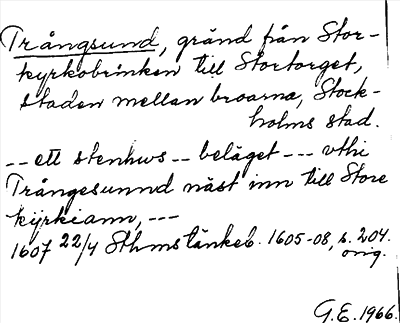 Trångsund, gränd från Stor-
kyrkobrinken till Stortorget,
staden mellan broarna, Stock-
holms stad.
-- ett stenhws -- beläget --- vthi
Trångesunnd näst inn till Store
kijrkiann, ---
1607 22/4 Sthms tänkeb. 1605-08, s. 204.
orig.
G.E. 1966.